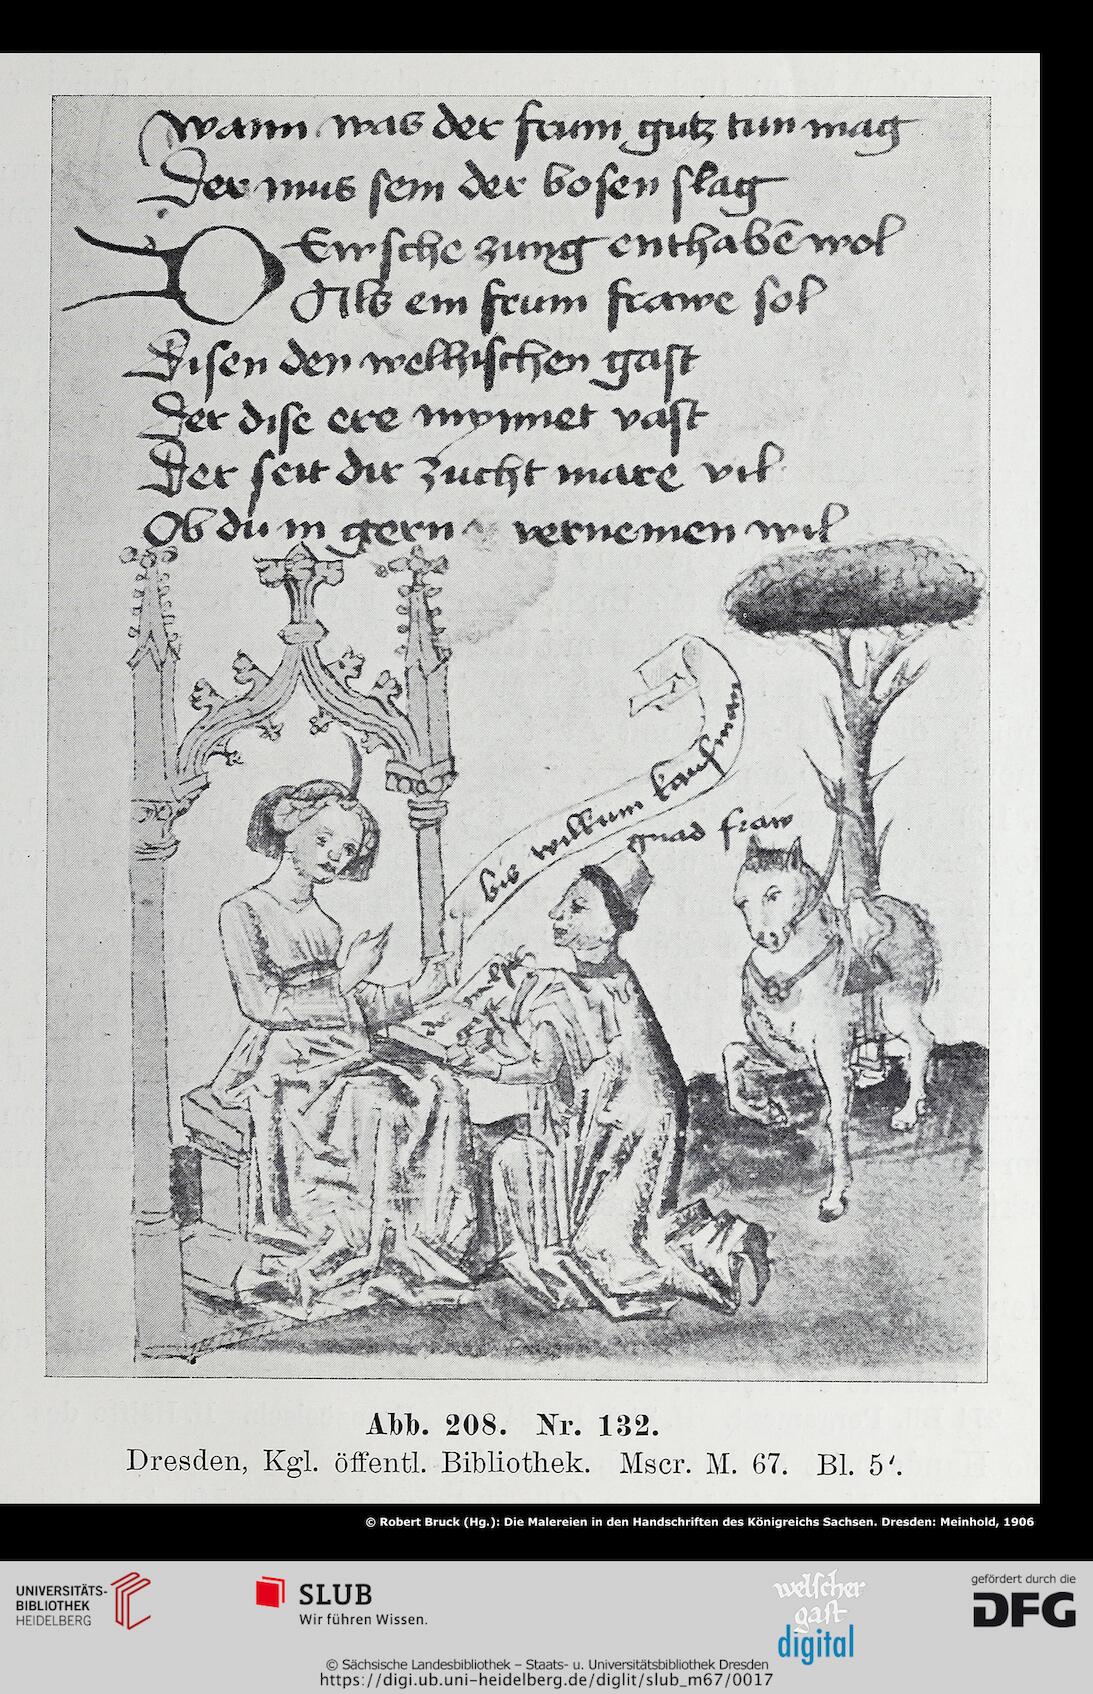 wann was der frum gutz tun mag
Der mus sein der bosen slag
Dewsche zung enthabē wol
Als ein frum frawe sol
Disen den welhischen gast
Der dise ere mynnet vast
Der seit dir zucht mare vil
Ob du in gern vernemen wil
bis wilkum kaufman
gnad fraw
Abb. 208. Nr. 132.
Dresden, Kgl. öffentl. Bibliothek. Mscr. M. 67. Bl. 5′.
© Robert Bruck (Hg.): Die Malereien in den Handschriften des Königreichs Sachsen. Dresden: Meinhold, 1906
UNIVERSITÄTS-
BIBLIOTHEK
HEIDELBERG
SLUB
Wir führen Wissen.
welscher
gast
digital
gefördert durch die
DFG
© Sächsische Landesbibliothek – Staats- u. Universitätsbibliothek Dresden
https://digi.ub.uni-heidelberg.de/diglit/slub_m67/0017